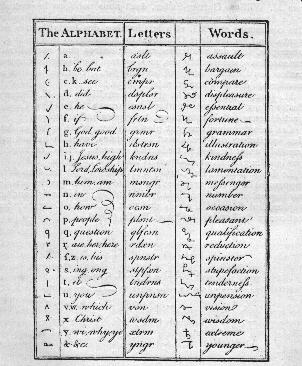 The ALPHABET. Letters Words.
a. aslt assault
b. be, but brgn bargain
c. k. see cmpr compare
d. did dsplsr displeasure
e. he esnsl essential
f. if frtn fortune
g. God, good grmr grammar
h. have ilstrsn illustration
i. j. Jesus, high kndns kindness
l. Lord, lordship lmntsn lamentation
m. hum, am msngr messenger
n. in nmbr number
o. how ocsn occasion
p. people plsnt pleasant
q. question qlfcsn qualification
r. are rdcn reduction
f. z. is, his spnstr spinster
s. ing, ong stpfsn stupefaction
t. it tndrns tenderness
u. you
v. which vsn vision
x Christ wsdm wisdom
y. xtrm extreme
&c. yngr younger